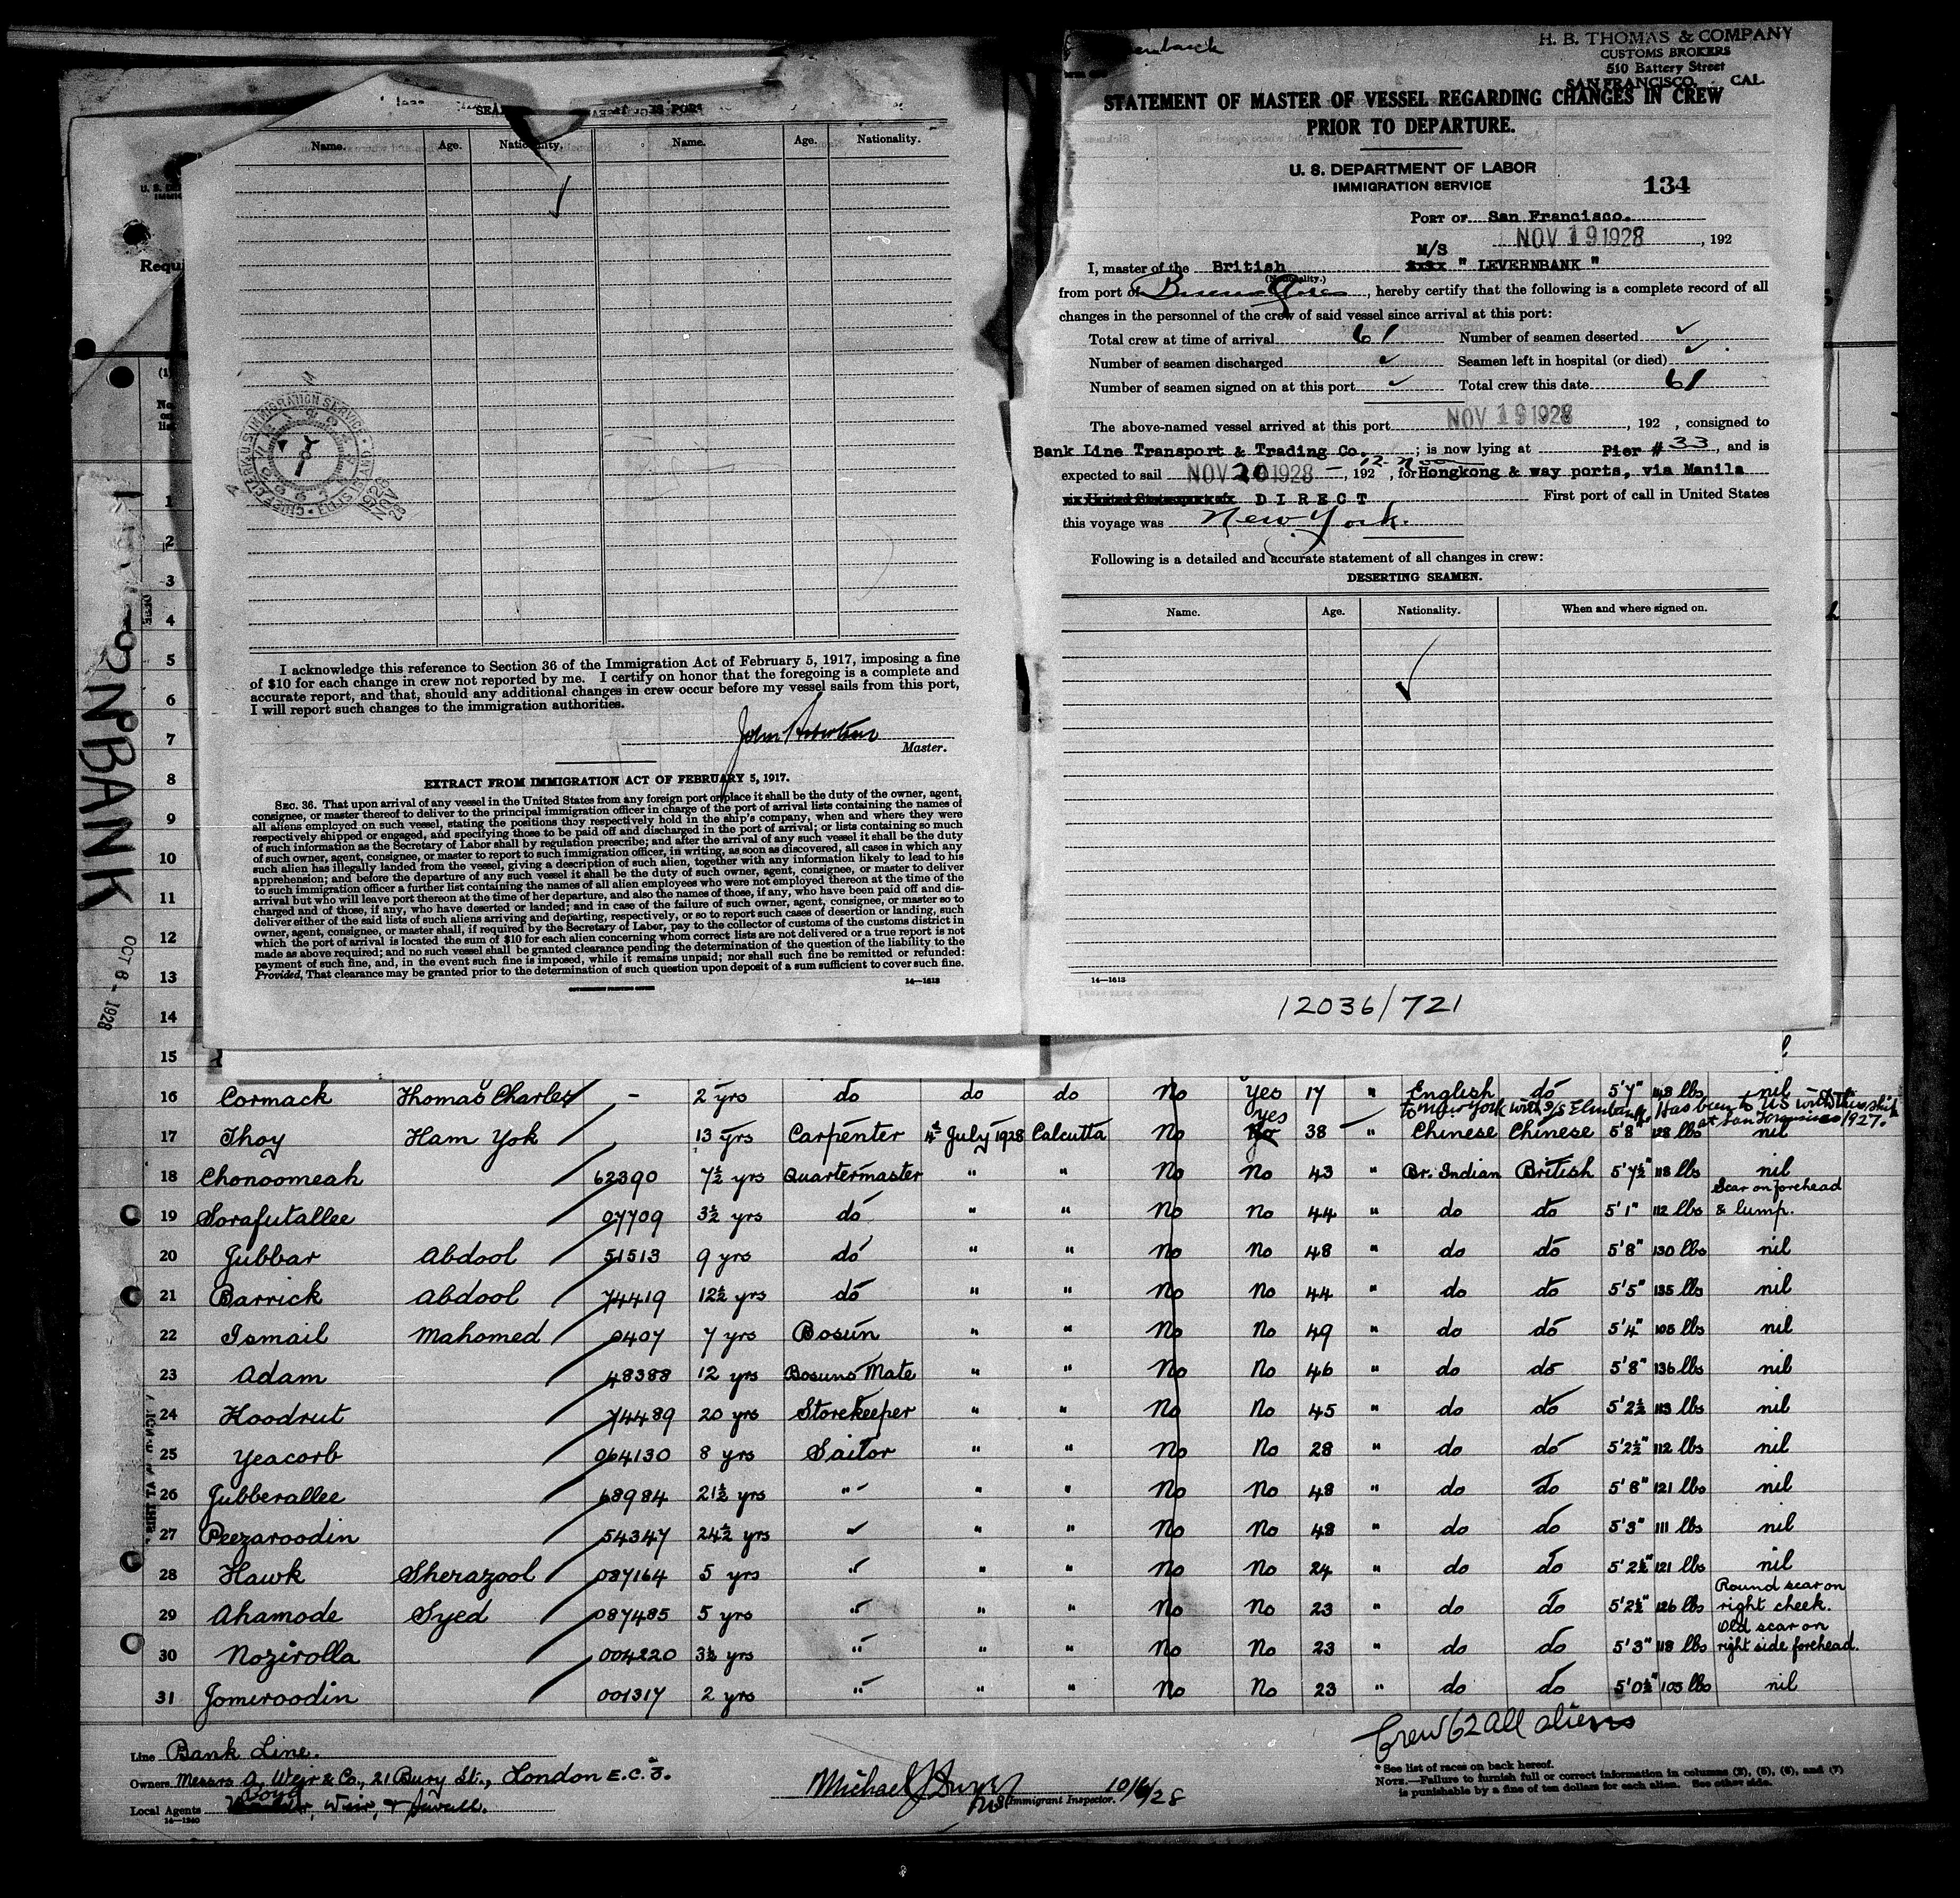 Name. Age. Nationality. Name. Age. Nationality.
I acknowledge this reference to Section 36 of the Immigration Act of February 5, 1917, imposing a fine
of $10 for each change in crew not reported by me. I certify on honor that the foregoing is a complete and
accurate report, and that, should any additional changes in crew occur before my vessel sails from this port,
I will report such changes to the immigration authorities.
John Robertson
Master.
EXTRACT FROM IMMIGRATION ACT OF FEBRUARY 5, 1917.
SEC. 36. That upon arrival of any vessel in the United States from any foreign port or place it shall be the duty of the owner, agent,
consignee, or master thereof to deliver to the principal immigration officer in charge of the port of arrival lists containing the names of
all aliens employed on such vessel, stating the positions they respectively hold in the ship's company, when and where they were
respectively shipped or engaged, and specifying those to be paid off and discharged in the port of arrival; or lists containing so much
of such information as the Secretary of Labor shall by regulation prescribe; and after the arrival of any such vessel it shall be the duty
of such owner, agent, consignee, or master to report to such immigration officer, in writing, as soon as discovered, all cases in which any
such alien has illegally landed from the vessel, giving a description of such alien, together with any information likely to lead to his
apprehension; and before the departure of any such vessel it shall be the duty of such owner, agent, consignee, or master to deliver
to such immigration officer a further list containing the names of all alien employees who were not employed thereon at the time of the
arrival but who will leave port thereon at the time of her departure, and also the names of those, if any, who have been paid off and dis-
charged and of those, if any, who have deserted or landed; and in case of the failure of such owner, agent, consignee, or master so to
deliver either of the said lists of such aliens arriving and departing, respectively, or so to report such cases of desertion or landing, such
owner, agent, consignee, or master shall, if required by the Secretary of Labor, pay to the collector of customs of the customs district in
which the port of arrival is located the sum of $10 for each alien concerning whom correct lists are not delivered or a true report is not
made as above required; and no such vessel shall be granted clearance pending the determination of the question of the liability to the
payment of such fine, and, in the event such fine is imposed, while it remains unpaid; nor shall such fine be remitted or refunded:
Provided, That clearance may be granted prior to the determination of such question upon deposit of a sum sufficient to cover such fine.
GOVERNMENT PRINTING OFFICE
14—1613
H. B. THOMAS & COMPANY
CUSTOMS BROKERS
510 Battery Street
SAN FRANCISCO, CAL
STATEMENT OF MASTER OF VESSEL REGARDING CHANGES IN CREW
PRIOR TO DEPARTURE.
U. S. DEPARTMENT OF LABOR
IMMIGRATION SERVICE
134
PORT OF San Francisco.
NOV 19 1928, 192
M/S
I, master of the British " LEVERNBANK "
(Nationality.)
from port of Buenos Aires, hereby certify that the following is a complete record of all
changes in the personnel of the crew of said vessel since arrival at this port:
Total crew at time of arrival 61 Number of seamen deserted ✓
Number of seamen discharged ✓ Seamen left in hospital (or died) ✓
Number of seamen signed on at this port ✓ Total crew this date 61
The above-named vessel arrived at this port NOV 19 1928, 192 , consigned to
Bank Line Transport & Trading Co. ; is now lying at Pier # 33, and is
expected to sail NOV 20 1928 — 12 noon, 192 , for Hongkong & way ports, via Manila
DIRECT First port of call in United States
this voyage was New York.
Following is a detailed and accurate statement of all changes in crew:
DESERTING SEAMEN.
Name. Age. Nationality. When and where signed on.
14—1613
12036/721
NBANK
OCT 6 - 1928
Requi
1
2
3
4
5
6
7
8
9
10
11
12
13
14
15
16 Cormack Thomas Charles - 2 yrs do do do No Yes 17 " English do 5'7" 148 lbs nil
yes to New York with S/S Elmbank. Has been to US with this ship at San Francisco 1927.
17 Thoy Ham Yok 13 yrs Carpenter 4th July 1928 Calcutta No No 38 " Chinese Chinese 5'8" 128 lbs nil
18 Chonoomeah 62390 7½ yrs Quartermaster " " No No 43 " Br. Indian British 5'7½" 118 lbs nil
19 Sorafutallee 07709 3½ yrs do " " No No 44 " do do 5'1" 112 lbs Scar on forehead & lump.
20 Jubbar Abdool 51513 9 yrs do " " No No 48 " do do 5'8" 130 lbs nil
21 Barrick Abdool 74419 12½ yrs do " " No No 44 " do do 5'5" 135 lbs nil
22 Ismail Mahomed 0407 7 yrs Bosun " " No No 49 " do do 5'4" 105 lbs nil
23 Adam 48388 12 yrs Bosuns Mate " " No No 46 " do do 5'8" 136 lbs nil
24 Koodrut 74489 20 yrs Storekeeper " " No No 45 " do do 5'2½ 113 lbs nil
25 Yeacorb 064130 8 yrs Sailor " " No No 28 " do do 5'2½" 112 lbs nil
26 Jubberallee 68984 21½ yrs " " " No No 48 " do do 5'8" 121 lbs nil
27 Peezaroodin 54347 24½ yrs " " " No No 48 " do do 5'3" 111 lbs nil
28 Hawk Sherazool 087164 5 yrs " " " No No 24 " do do 5'2½" 121 lbs nil
29 Ahamode Syed 087485 5 yrs " " " No No 23 " do do 5'2½" 126 lbs Round scar on right cheek.
30 Nozirolla 004220 3½ yrs " " " No No 23 " do do 5'3" 118 lbs Old scar on right side forehead.
31 Jomeroodin 001317 2 yrs " " " No No 23 " do do 5'0½" 105 lbs nil
Crew 62 all aliens
Line Bank Line.
Owners Messrs A. Weir & Co., 21 Bury St., London E.C.3.
Local Agents Boyd, Weir, & Sewell.
14—1240
Immigrant Inspector. 10/6/28
* See list of races on back hereof.
NOTE.—Failure to furnish full or correct information in columns (3), (5), (6), and (7)
is punishable by a fine of ten dollars for each alien. See other side.